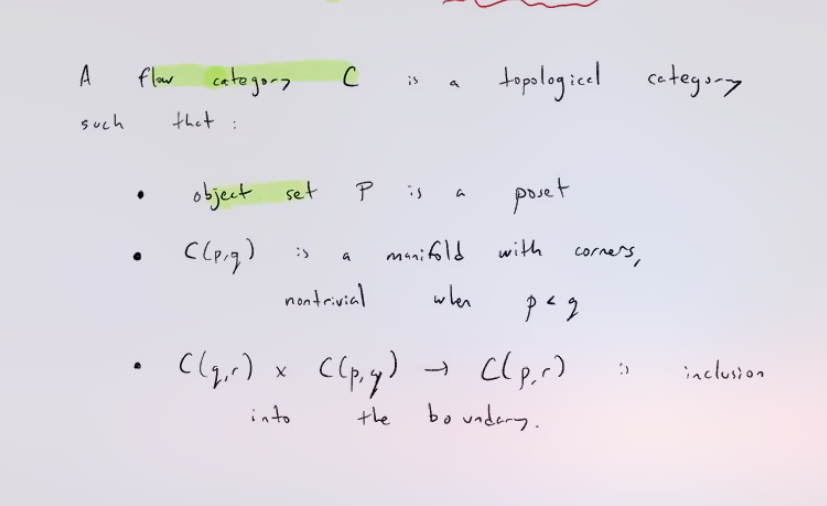 A flow category C is a topological category
such that :
• object set P is a poset
• C(p,q) is a manifold with corners,
nontrivial when p < q
• C(q,r) × C(p,q) → C(p,r) is inclusion
into the boundary.